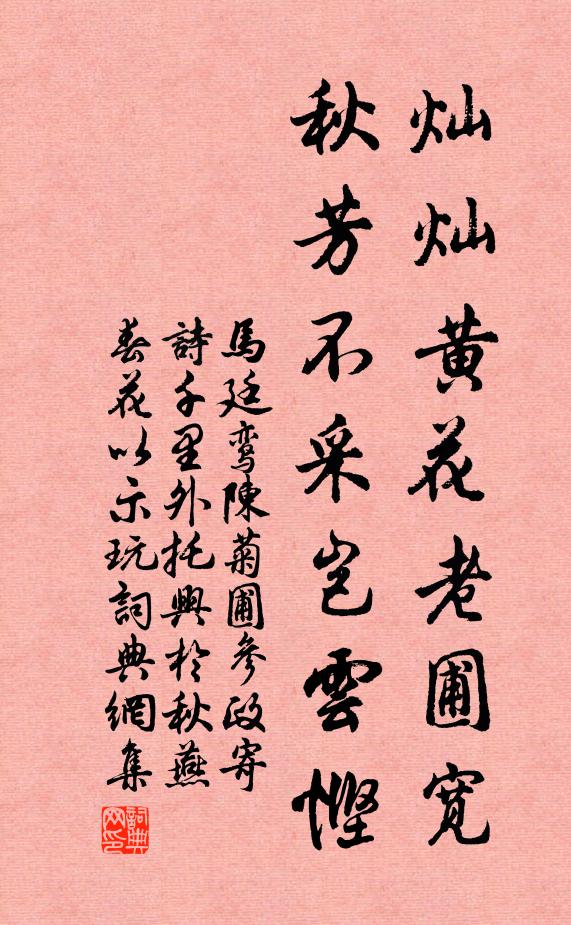 灿灿黄花老圃宽
秋芳不采岂雲慳
馬廷鸾陳菊圃參政寄
詩千里外托興於秋燕
春花以示玩詞典網集
詞典网印